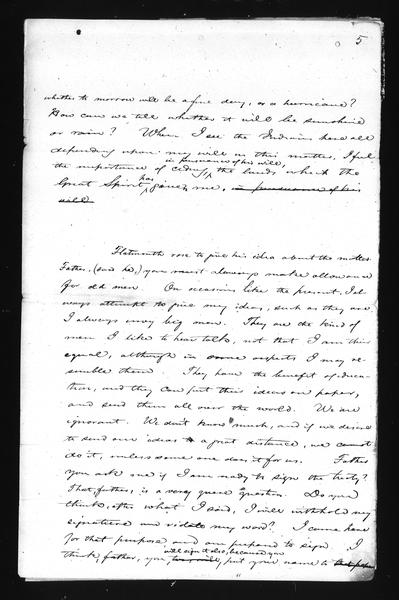 5
whether to morrow will be a fine day, or a hurricane?
How can we tell whether it will be sunshine
or rain? When I see the Indians here all
depending upon my will in this matter, I feel
in pursuance of his will,
the importance of ceding, the lands which the
has
Great Spirit given me, in pursuance of his
will
Flatmouth rose to give his idea about the matter.
Father, (said he,) you must always make allowance
for old men. On occasions like the present, I al-
ways attempt to give my ideas, such as they are
I always envy big men. They are the kind of
men I like to hear talk, not that I am their
equal, although in some respects I may re-
semble them. They have the benefit of educa-
tion, and they can put their ideas on paper,
and send them all over the world. We are
ignorant. We don't know much, and if we desire
to send our ideas to a great distance, we cannot
do it, unless some one does it for us. Father
you ask me if I am ready to sign the treaty?
That, father, is a very queer question. Do you
think, after what I said, I will withhold my
signature and violate my word? I came here
for that purpose and am prepared to sign. I
will sign it also, because you
think, father, you, put your name to